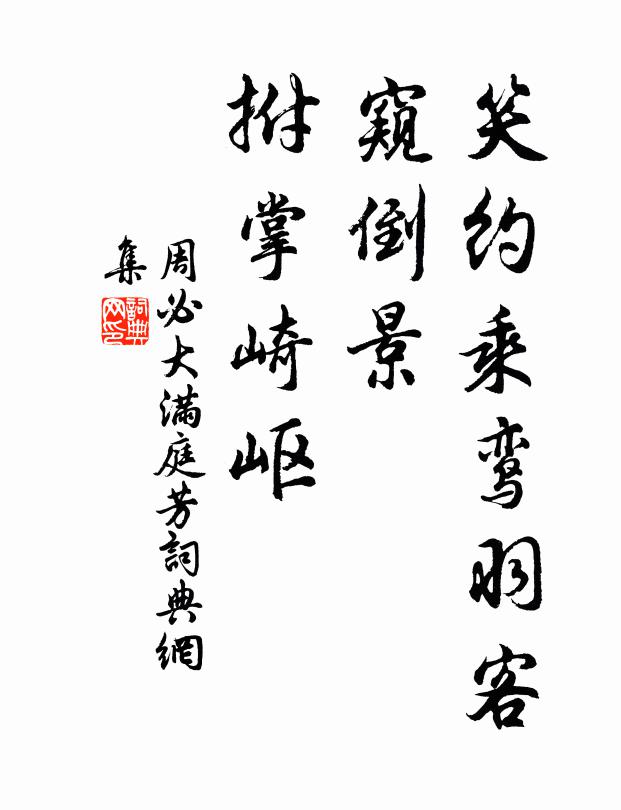 笑约乘鸾羽客
窥倒景
拊掌崎岖
周必大满庭芳詞典網
集
詞典网印